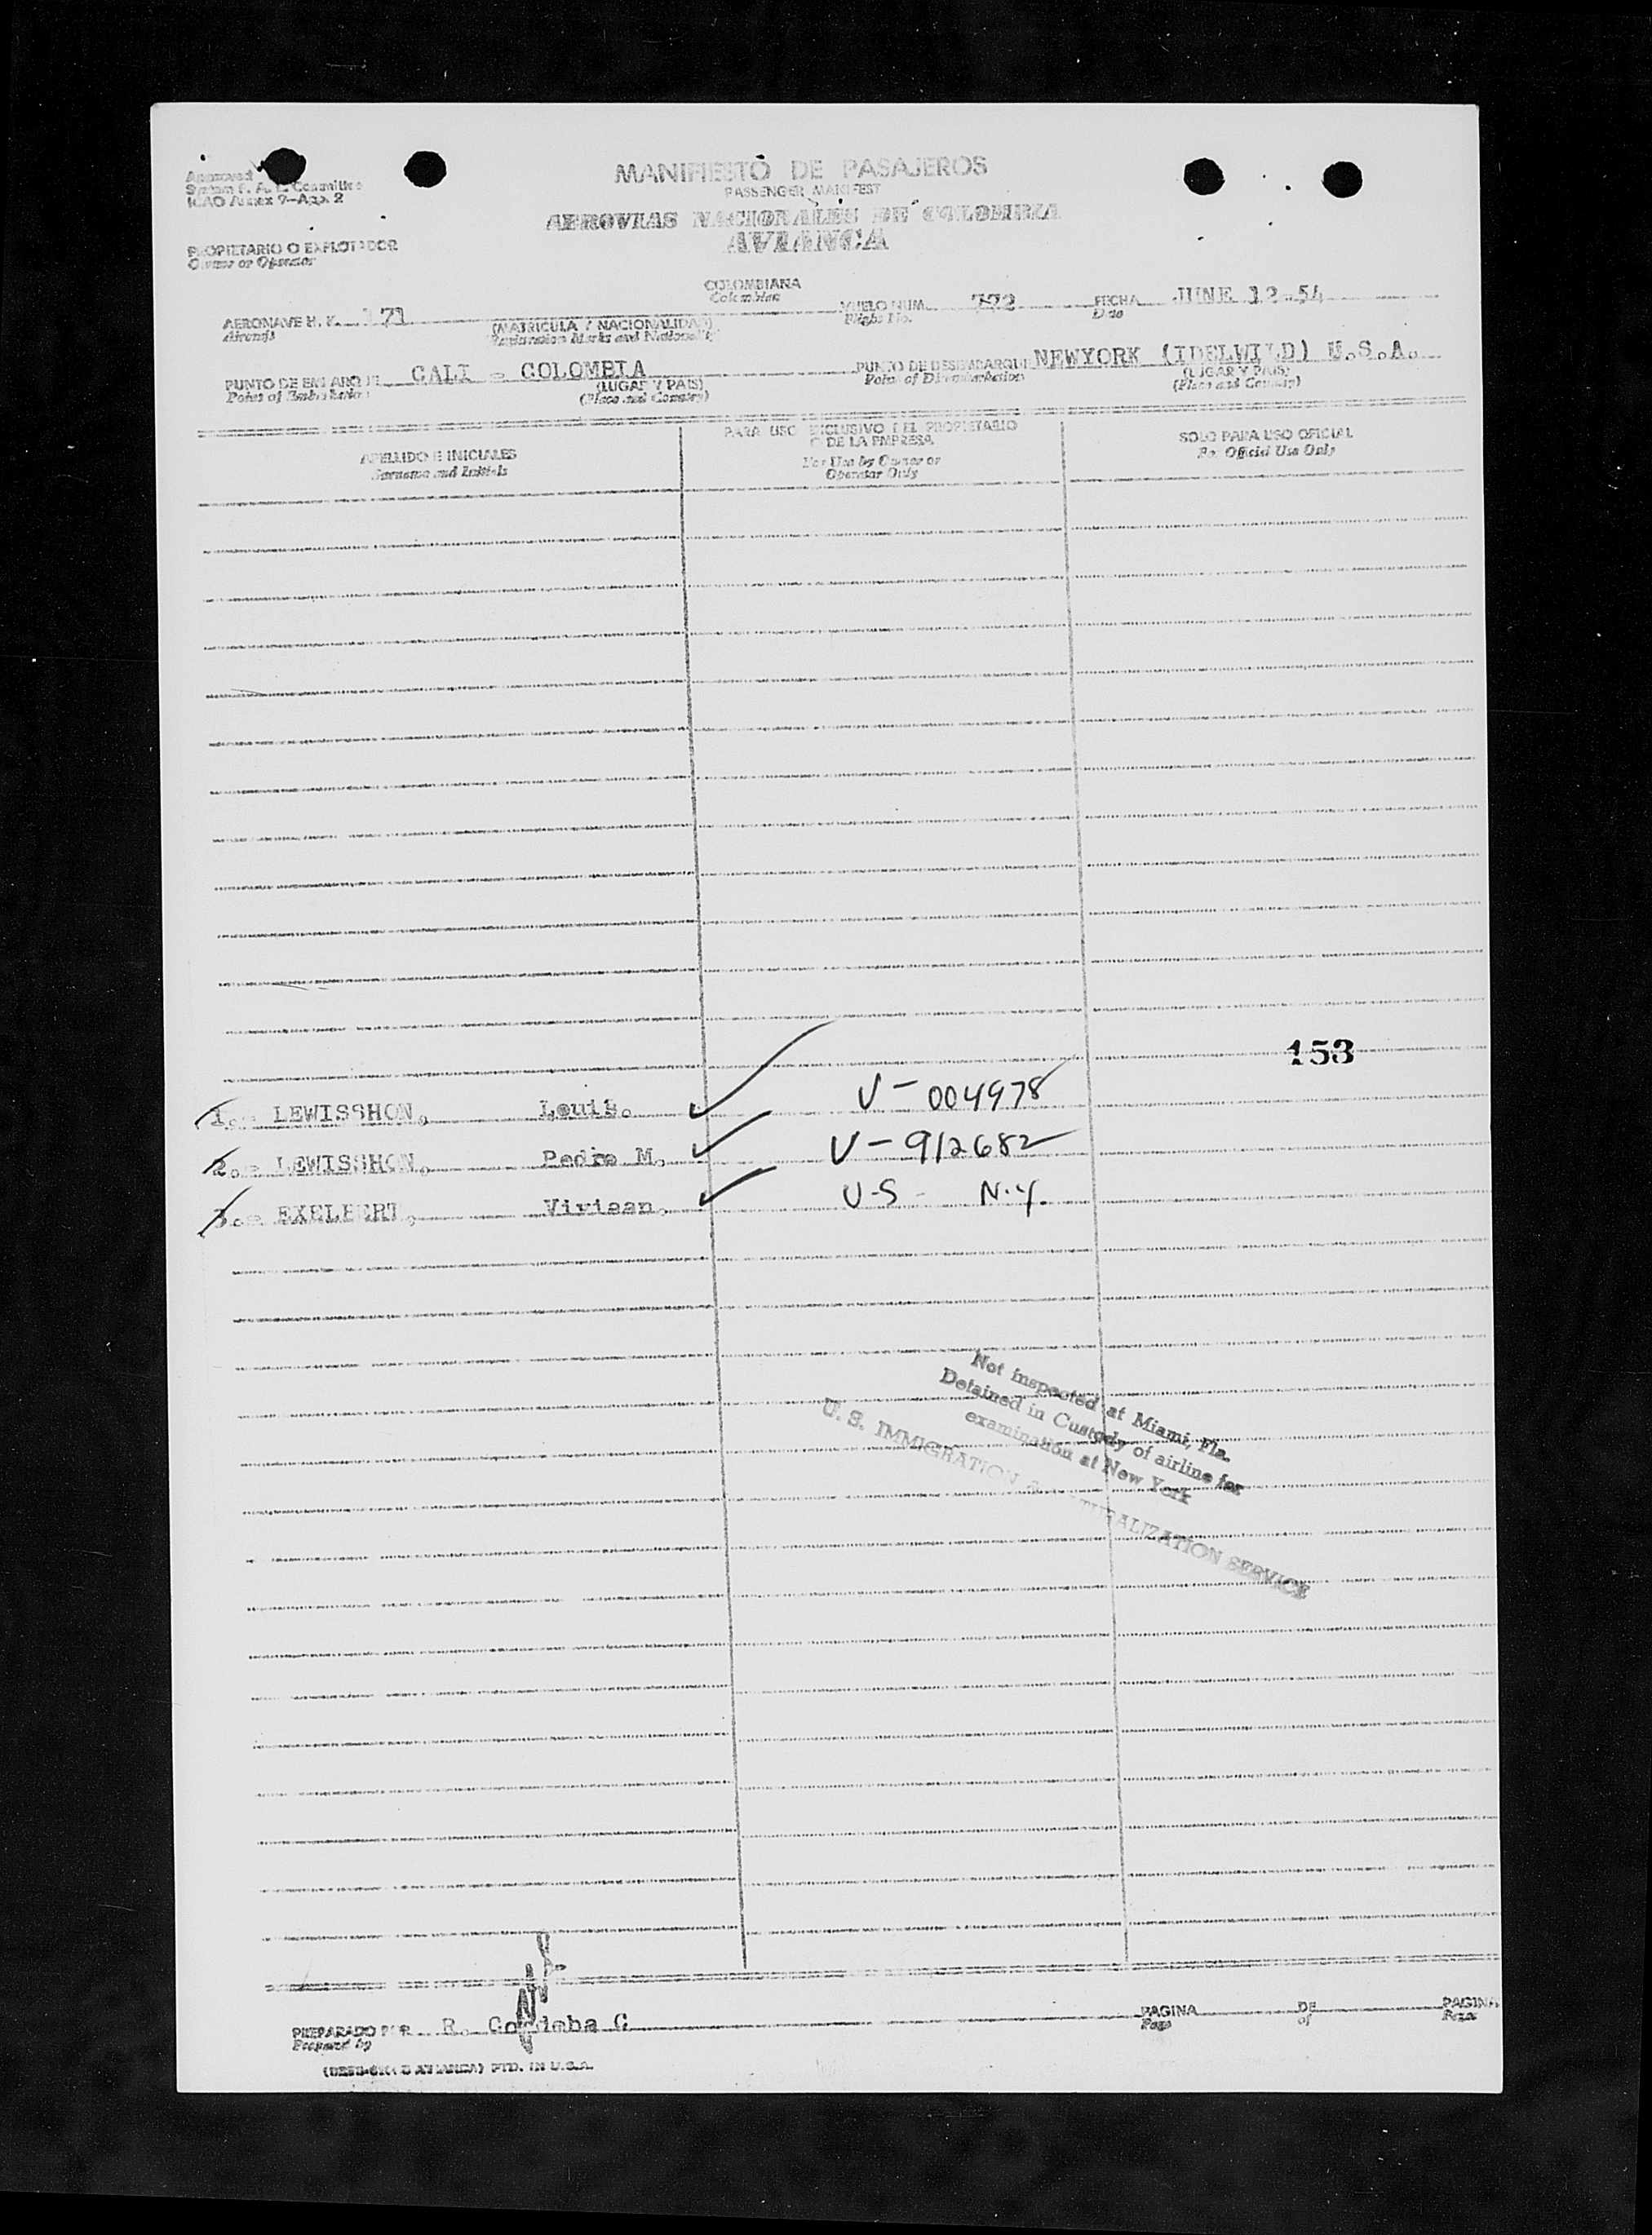 Approved
System F. A. L. Committee
ICAO Annex 9-App. 2
MANIFIESTO DE PASAJEROS
PASSENGER MANIFEST
AEROVIAS NACIONALES DE COLOMBIA
AVIANCA
PROPIETARIO O EXPLOTADOR
Owner or Operator
COLOMBIANA
Colombian
AERONAVE H. K. 171 (MATRICULA Y NACIONALIDAD) VUELO NUM. 772 FECHA JUNE 12-54
Aircraft (Registration Marks and Nationality) Flight No. Date
PUNTO DE EMBARQUE CALI - COLOMBIA PUNTO DE DESEMBARQUE NEWYORK (IDELWILD) U.S.A.
Point of Embarkation (LUGAR Y PAIS) Point of Disembarkation (LUGAR Y PAIS)
(Place and Country) (Place and Country)
APELLIDO E INICIALES PARA USO EXCLUSIVO DEL PROPIETARIO SOLO PARA USO OFICIAL
Surname and Initials O DE LA EMPRESA For Official Use Only
For Use by Owner or
Operator Only
153
1.- LEWISSHON, Louis. V-004978
2.- LEWISSHON, Pedro M. V-912682
3.- EXELBERT, U-S - N.Y.
Not inspected at Miami, Fla.
Detained in Custody of airline for
examination at New York
U. S. IMMIGRATION & NATURALIZATION SERVICE
PREPARADO POR R. C PAGINA DE PAGINA
Prepared by Page of Page
PTD. IN U.S.A.